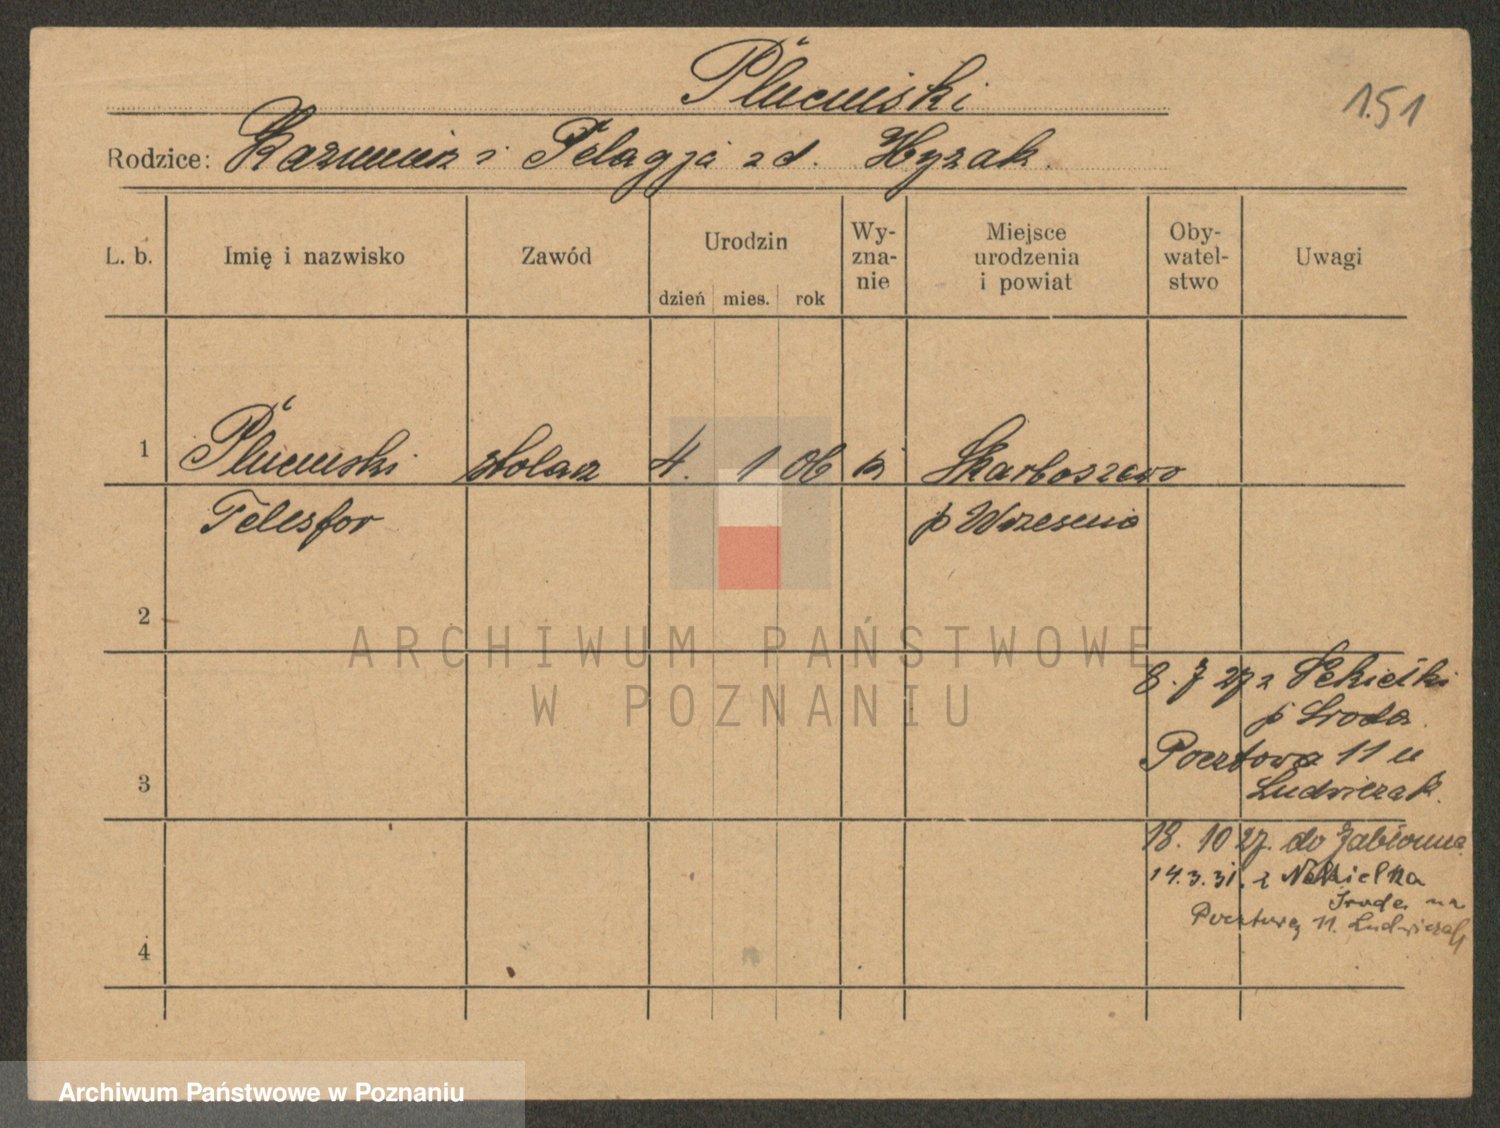 Pluciński
151
Rodzice: Kazimierz i Pelagja zd. Hyzak.
L. b. Imię i nazwisko Zawód Urodzin dzień mies. rok Wy-zna-nie Miejsce urodzenia i powiat Oby-watel-stwo Uwagi
1 Pluciński stolarz 4. 1 06 k Skarboszewo
Telesfor p Września
2
8. 7 27 z
p Środa
Pocztowa 11 u
3 Ludwiczak.
18. 10 27. do
14.3.31. z Nekielka
Środa na
Pocztową 11. Ludwiczak
4
ARCHIWUM PAŃSTWOWE
W POZNANIU
Archiwum Państwowe w Poznaniu